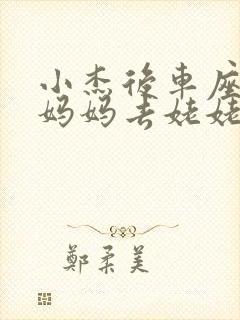 小杰後車座
妈妈去姥姥
鄭柔美